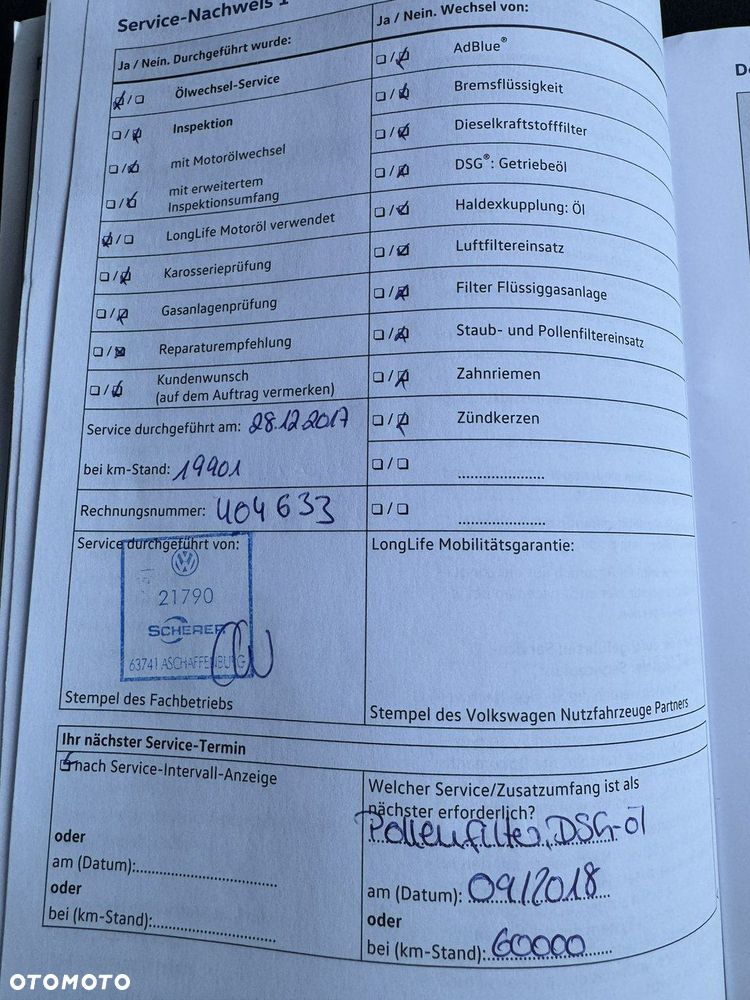 Service-Nachweis 1
Ja / Nein. Durchgeführt wurde:
Ölwechsel-Service
Inspektion
mit Motorölwechsel
mit erweitertem
Inspektionsumfang
LongLife Motoröl verwendet
Karosserieprüfung
Gasanlagenprüfung
Reparaturempfehlung
Kundenwunsch
(auf dem Auftrag vermerken)
Service durchgeführt am: 28.12.2017
bei km-Stand: 19901
Rechnungsnummer: 404633
Ja / Nein. Wechsel von:
AdBlue®
Bremsflüssigkeit
Dieselkraftstofffilter
DSG®: Getriebeöl
Haldexkupplung: Öl
Luftfiltereinsatz
Filter Flüssiggasanlage
Staub- und Pollenfiltereinsatz
Zahnriemen
Zündkerzen
Service durchgeführt von:
21790
SCHERER
63741 ASCHAFFENBURG
Stempel des Fachbetriebs
LongLife Mobilitätsgarantie:
Stempel des Volkswagen Nutzfahrzeuge Partners
Ihr nächster Service-Termin
nach Service-Intervall-Anzeige
oder
am (Datum):
oder
bei (km-Stand):
Welcher Service/Zusatzumfang ist als
nächster erforderlich?
Pollenfilter, DSG-Öl
am (Datum): 09/2018
oder
bei (km-Stand): 60000
OTOMOTO